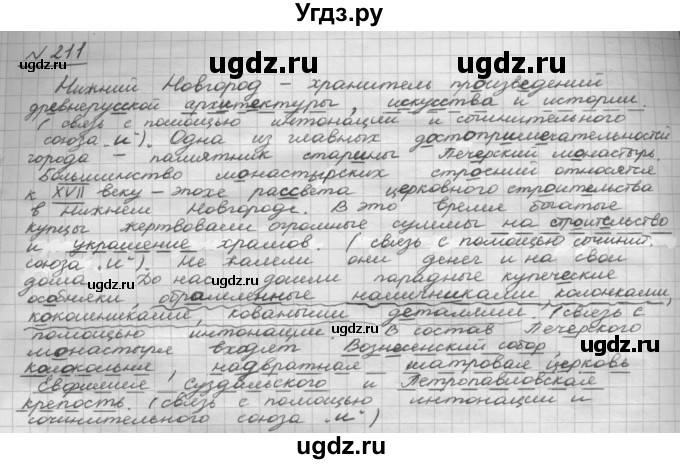 Угдз.ру
№ 211
Нижний Новгород – хранитель произведений
древнерусской архитектуры, искусства и истории.
(связь с помощью интонации и сочинительного
союза „и"). Одна из главных достопримечательностей
города – памятник старины Печерский монастырь.
Большинство монастырских строений относится
к XVII веку – эпохе рассвета церковного строительства
в Нижнем Новгороде. В это время богатые
купцы жертвовали огромные суммы на строительство
и украшение храмов. (связь с помощью сочинит.
союза „и"). Не жалели они денег и на свои
дома. До нас дошли парадные купеческие
особняки, обрамленные наличниками, колонками,
кокошниками, коваными деталями. (связь с
помощью интонации). В состав Печерского
монастыря входят Вознесенский собор,
колокольни, надвратная шатровая церковь
Евфимие Суздальского и Петропавловская
крепость. (связь с помощью интонации и
сочинительного союза „и")
ugdz.ru
ugdz.ru
ugdz.ru
ugdz.ru
ugdz.ru
ugdz.ru
ugdz.ru
ugdz.ru
ugdz.ru
ugdz.ru
ugdz.ru
ugdz.ru
ugdz.ru